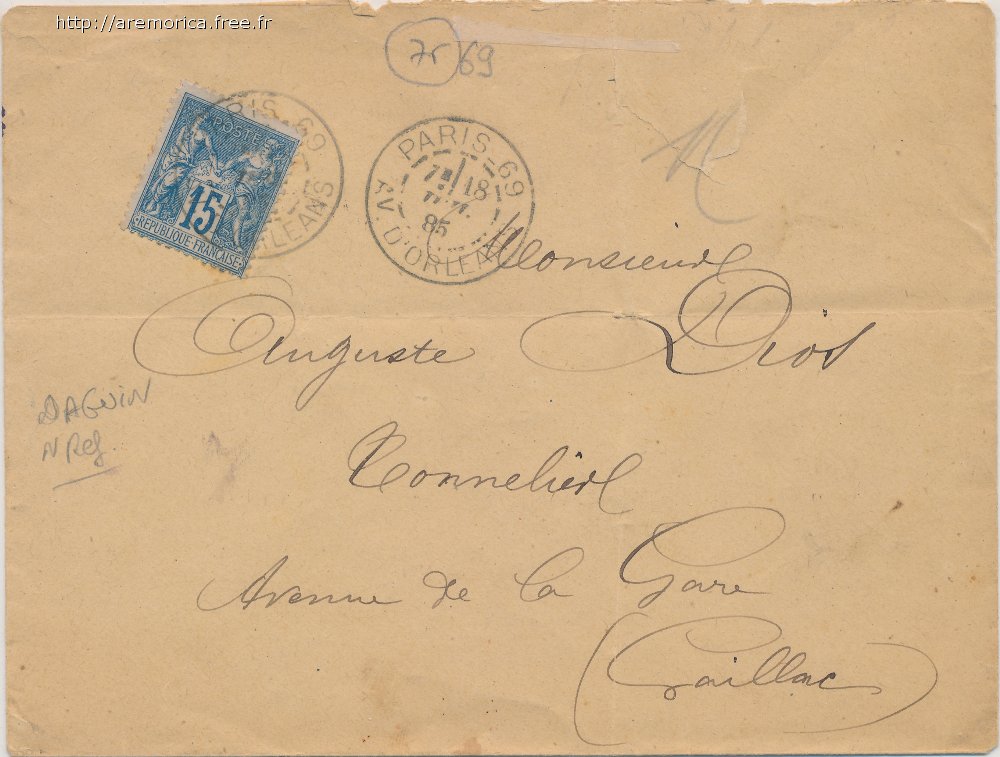 http://aremorica.free.fr
75 69
POSTE
15
REPUBLIQUE FRANÇAISE
PARIS_69
ORLEANS
PARIS_69
7E 18
85
AV. D'ORLEANS
Monsieur
Auguste Dios
Tonnelier
Avenue de la Gare
Gaillac
DAGUIN
N Ref